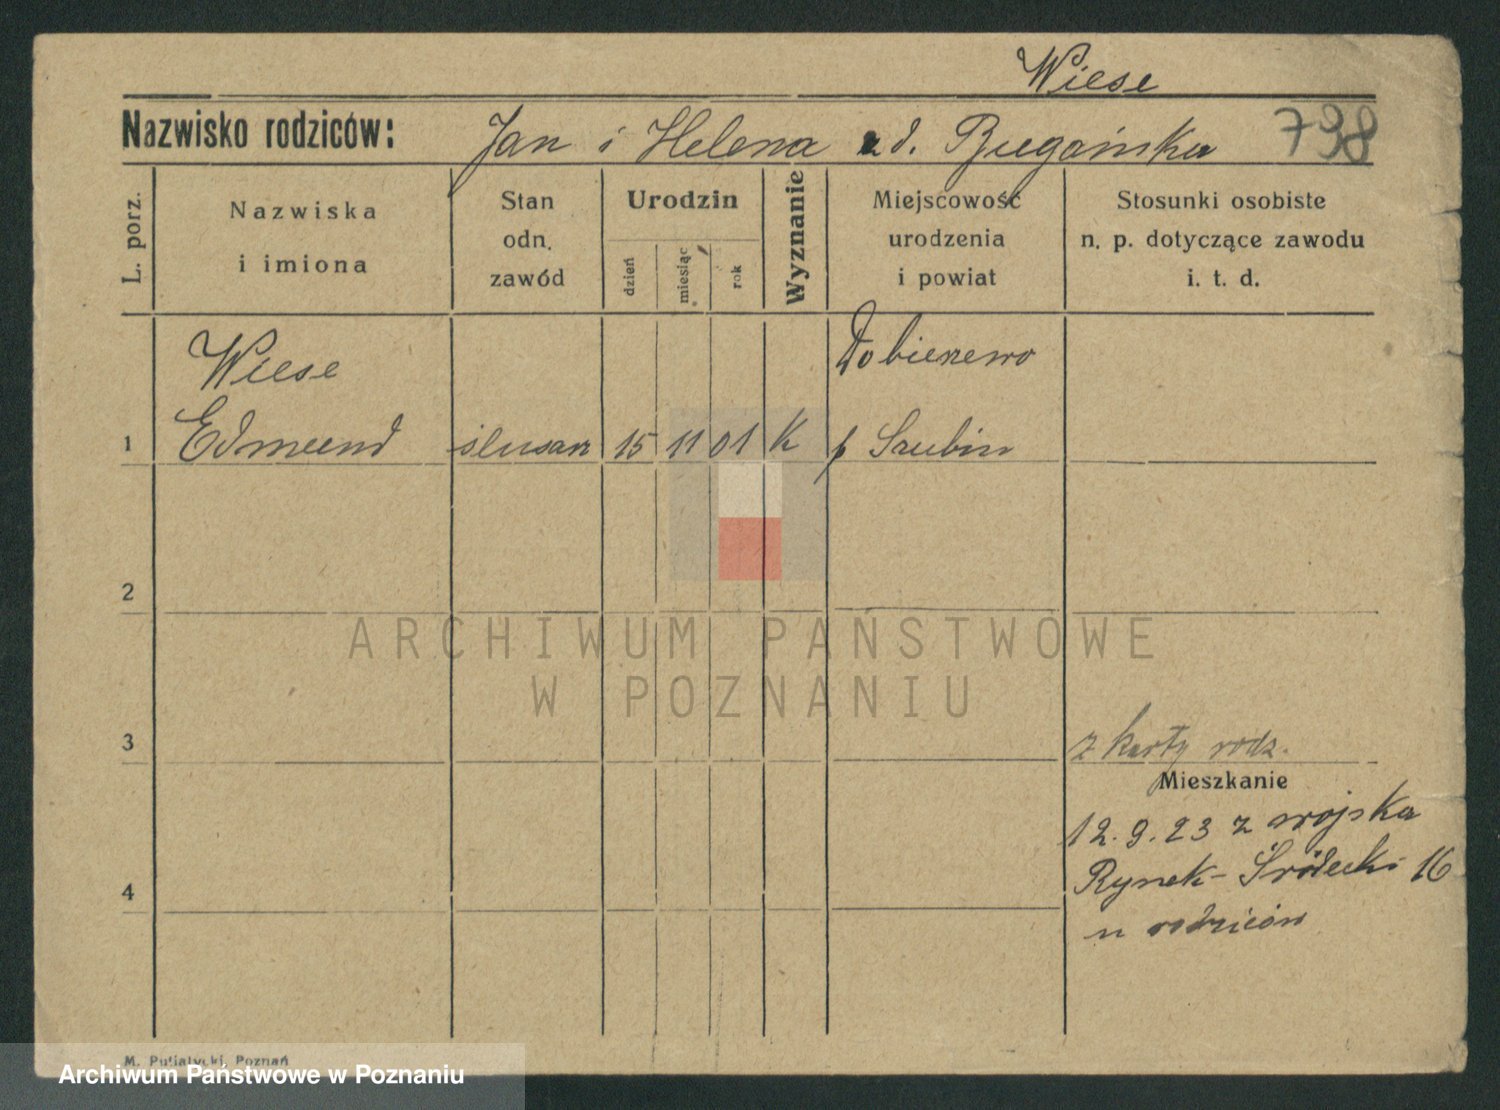 Wiese
Nazwisko rodziców: Jan i Helena zd. Biegańska 798
L. porz.
Nazwiska
i imiona
Stan
odn.
zawód
Urodzin
dzień
miesiąc
rok
Wyznanie
Miejscowość
urodzenia
i powiat
Stosunki osobiste
n. p. dotyczące zawodu
i. t. d.
Wiese Dobieszewo
1 Edmund ślusarz 15 11 01 K p Szubin
2
ARCHIWUM PAŃSTWOWE
W POZNANIU
3 z karty rodz.
Mieszkanie
12.9.23 z wojska
Rynek-Śródecki 16
4
u rodziców
M. Putiatycki, Poznań
Archiwum Państwowe w Poznaniu